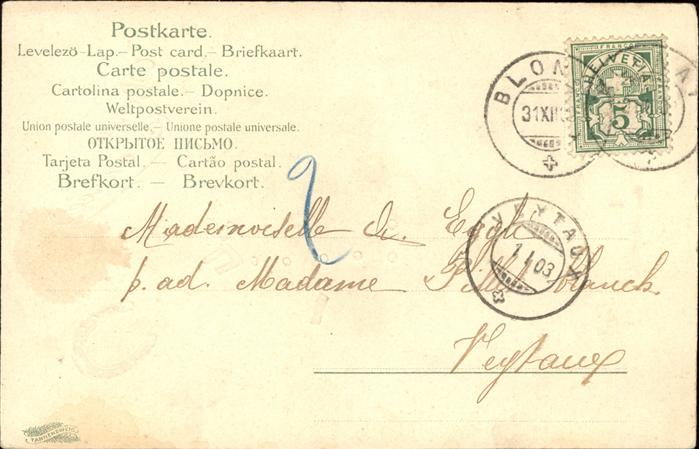 Postkarte.
Levelezö-Lap.— Post card.— Briefkaart.
Carte postale.
Cartolina postale. – Dopnice.
Weltpostverein.
Union postale universelle. – Unione postale universale.
ОТКРЫТОЕ ПИСЬМО.
Tarjeta Postal. — Cartão postal.
Brefkort. — Brevkort.
BLON
31XII
FRANCO
HELVETIA
5
2
VEYTAUX
1.I.03
Mademoiselle de
p. ad. Madame
Veytaux